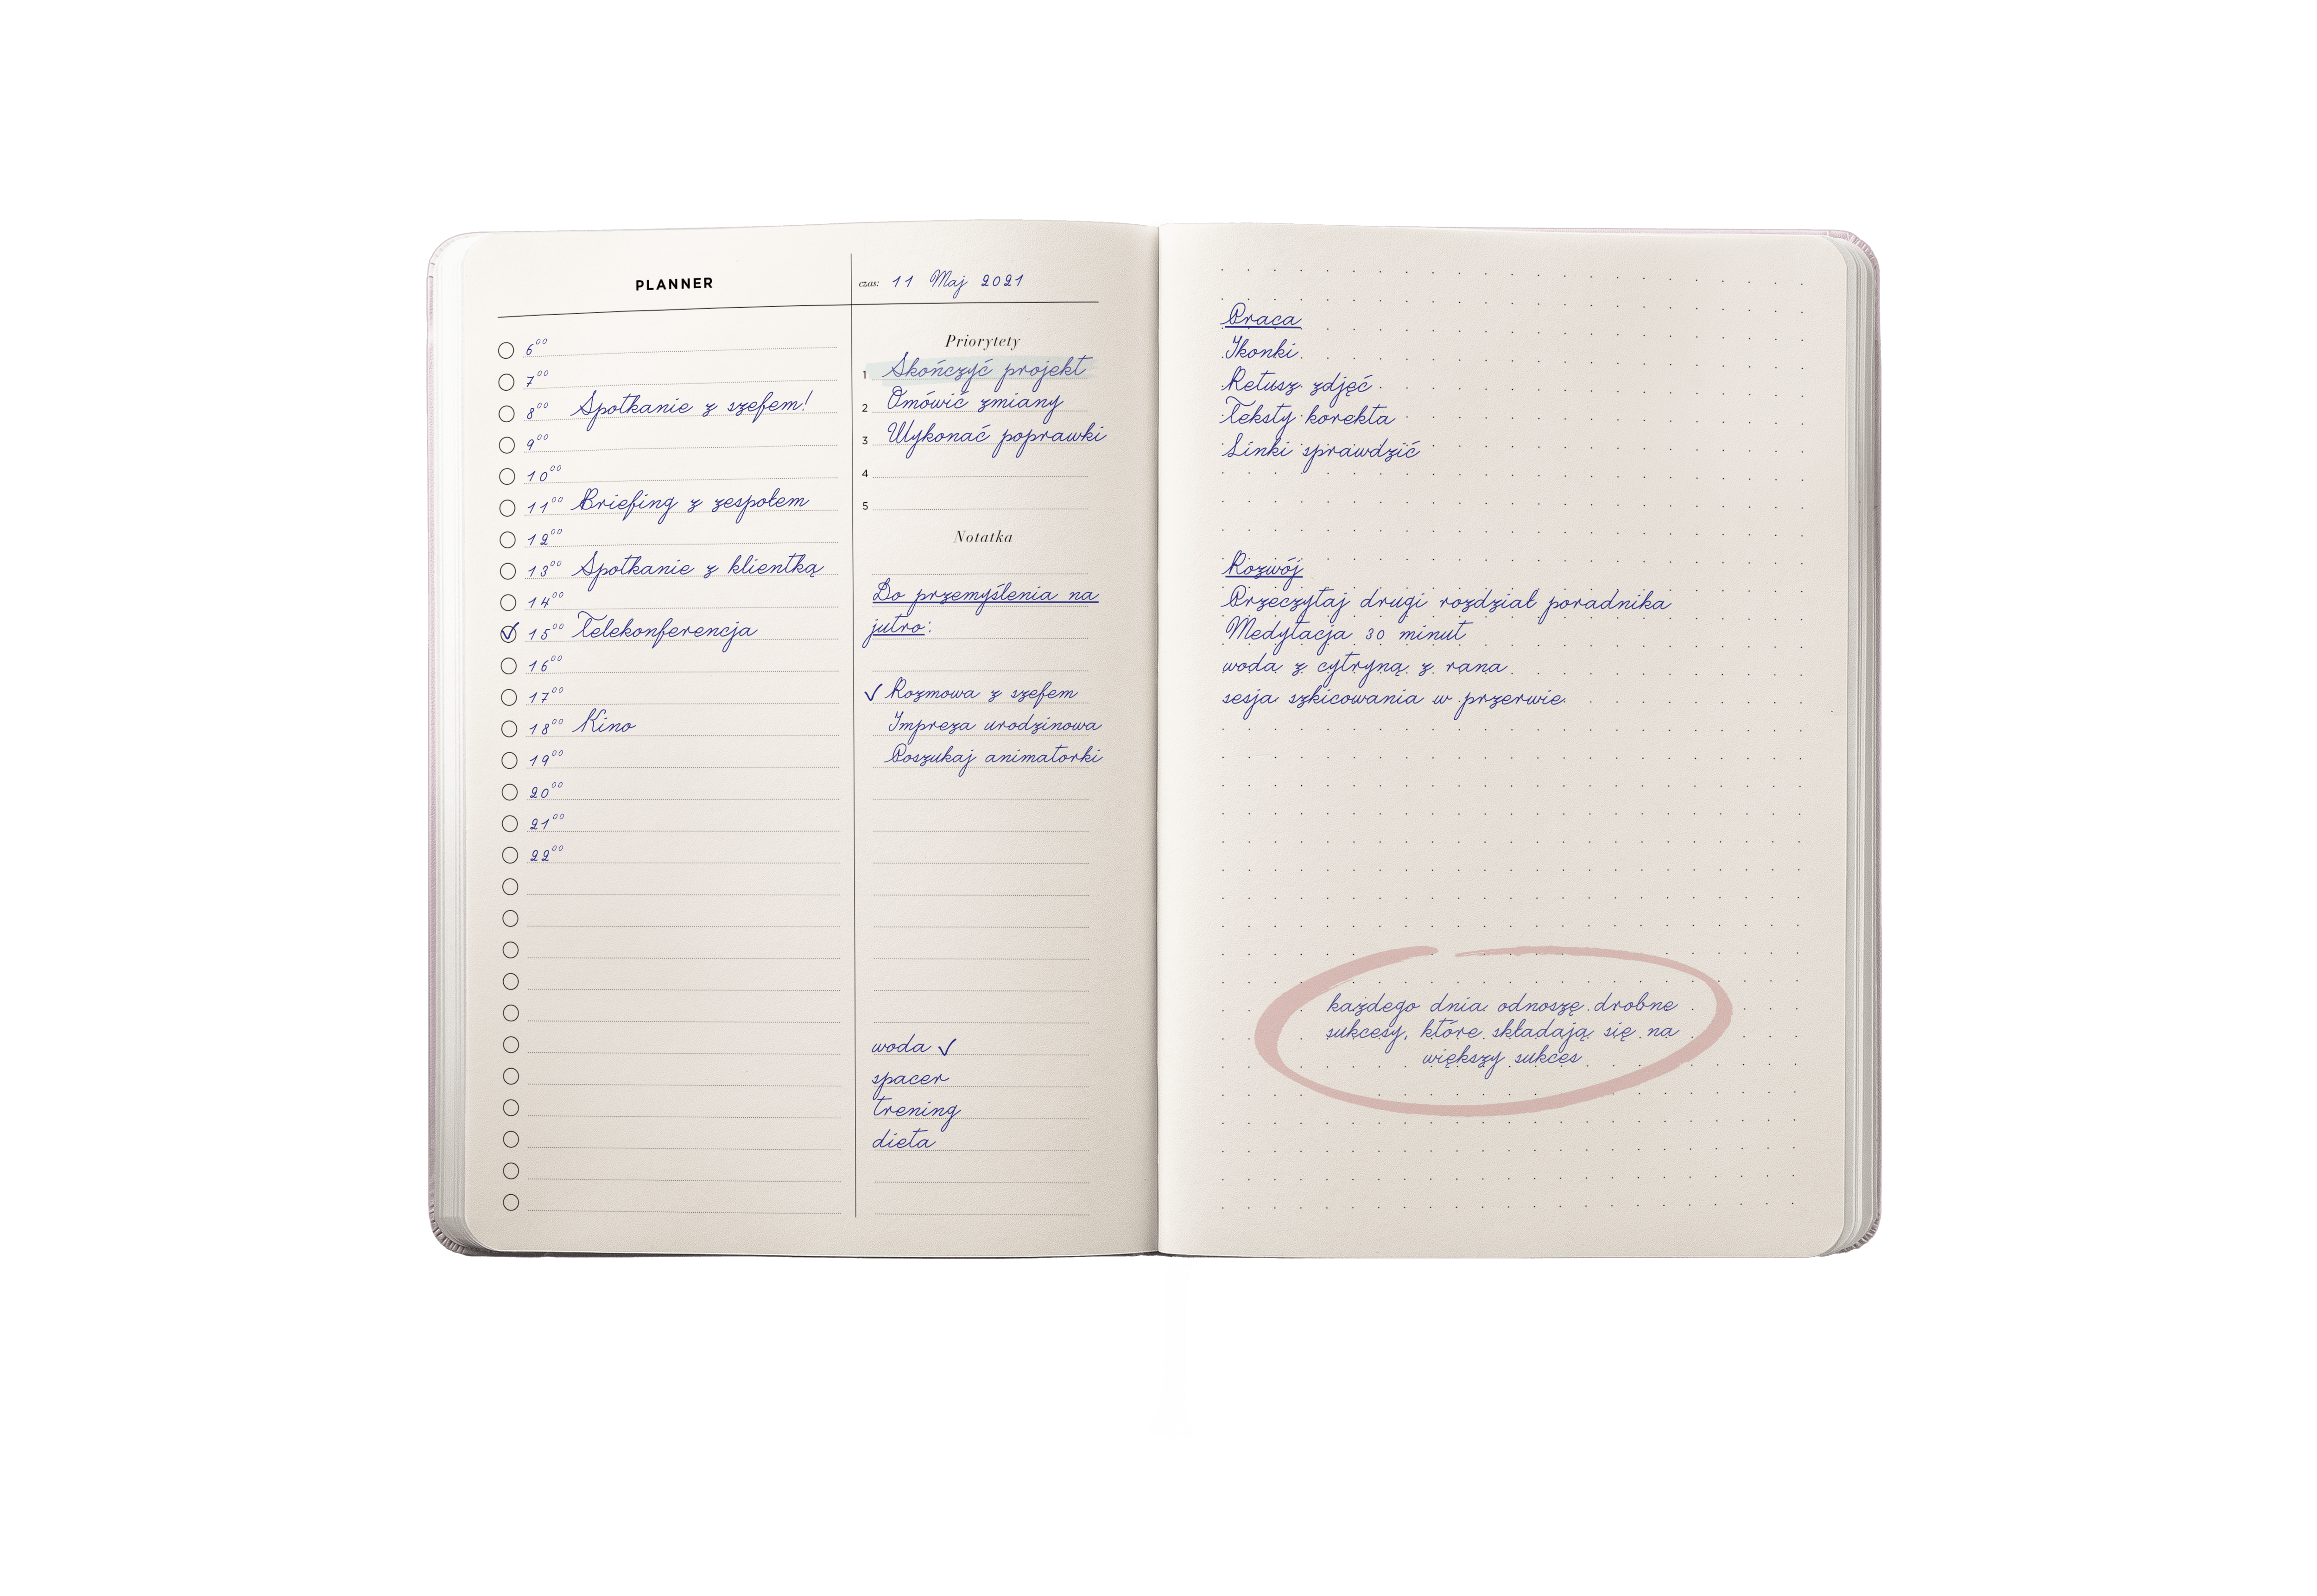 PLANNER
6⁰⁰
7⁰⁰
8⁰⁰ Spotkanie z szefem!
9⁰⁰
10⁰⁰
11⁰⁰ Briefing z zespołem
12⁰⁰
13⁰⁰ Spotkanie z klientką
14⁰⁰
15⁰⁰ Telekonferencja
16⁰⁰
17⁰⁰
18⁰⁰ Kino
19⁰⁰
20⁰⁰
21⁰⁰
22⁰⁰
czas: 11 Maj 2021
Priorytety
1 Skończyć projekt
2 Omówić zmiany
3 Wykonać poprawki
4
5
Notatka
Do przemyślenia na
jutro:
✓ Rozmowa z szefem
Impreza urodzinowa
Poszukaj animatorki
woda ✓
spacer
trening
dieta
Praca
Ikonki
Retusz zdjęć
Teksty korekta
Linki sprawdzić
Rozwój
Przeczytaj drugi rozdział poradnika
Medytacja 30 minut
woda z cytryną z rana
sesja szkicowania w przerwie
każdego dnia odnoszę drobne
sukcesy, które składają się na
większy sukces